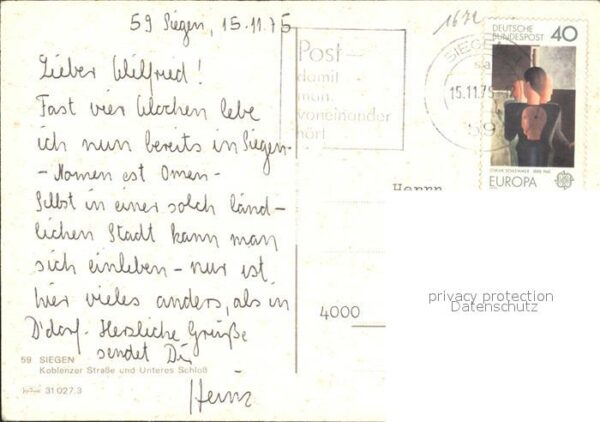 59 Siegen, 15.11.75
Lieber Wilfried!
Fast vier Wochen lebe
ich nun bereits in Siegen-
- Nomen est Omen -
Selbst in einer solch länd-
lichen Stadt kann man
sich einleben - nur ist
hier vieles anders, als in
D'dorf. Herzliche Grüße
sendet Dir
Heinz
59 SIEGEN
Koblenzer Straße und Unteres Schloß
31.027.3
Post-
damit
man
voneinander
hört
SIEGEN
15.11.75
59
DEUTSCHE
BUNDESPOST 40
OSKAR SCHLEMMER 1888-1943
EUROPA
Herrn
4000
privacy protection
Datenschutz